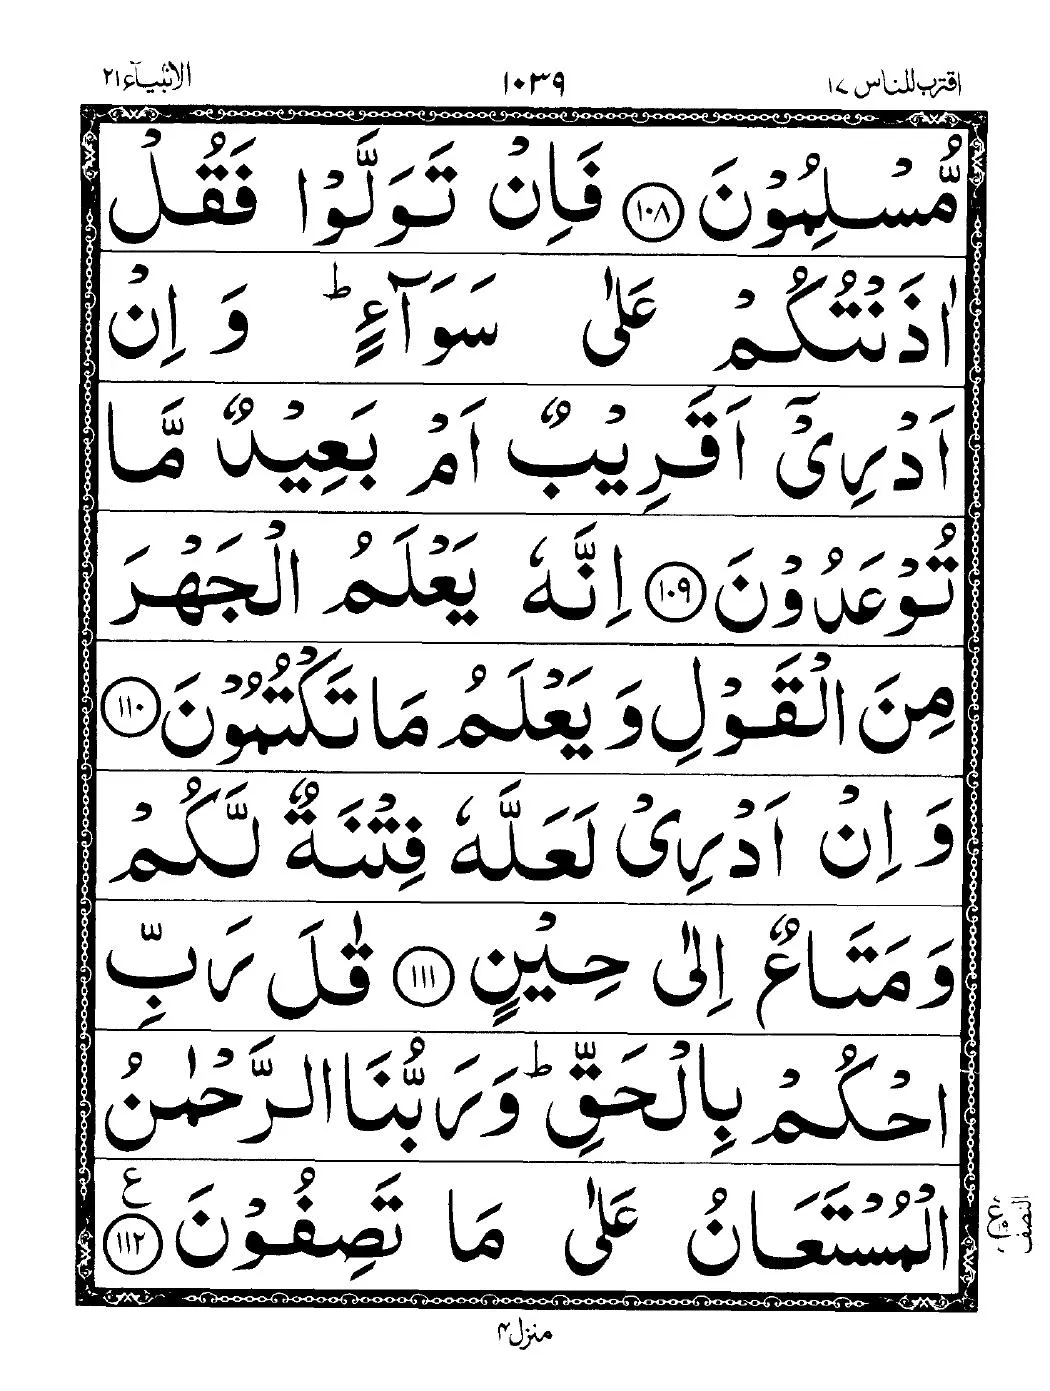 اقترب للناس ١٧ ١٠٣٩ الانبیآء ٢١
مُّسْلِمُوْنَ ﴿١٠٨﴾ فَاِنْ تَوَلَّوْا فَقُلْ
اٰذَنْتُكُمْ عَلٰی سَوَآءٍ ؕ وَ اِنْ
اَدْرِیْۤ اَقَرِیْبٌ اَمْ بَعِیْدٌ مَّا
تُوْعَدُوْنَ ﴿١٠٩﴾ اِنَّهٗ یَعْلَمُ الْجَهْرَ
مِنَ الْقَوْلِ وَ یَعْلَمُ مَا تَكْتُمُوْنَ ﴿١١٠﴾
وَ اِنْ اَدْرِیْ لَعَلَّهٗ فِتْنَةٌ لَّكُمْ
وَ مَتَاعٌ اِلٰی حِیْنٍ ﴿١١١﴾ قٰلَ رَبِّ
احْكُمْ بِالْحَقِّ ؕ وَ رَبُّنَا الرَّحْمٰنُ
الْمُسْتَعَانُ عَلٰی مَا تَصِفُوْنَ ﴿١١٢﴾ ع
النصف
منزل ۴